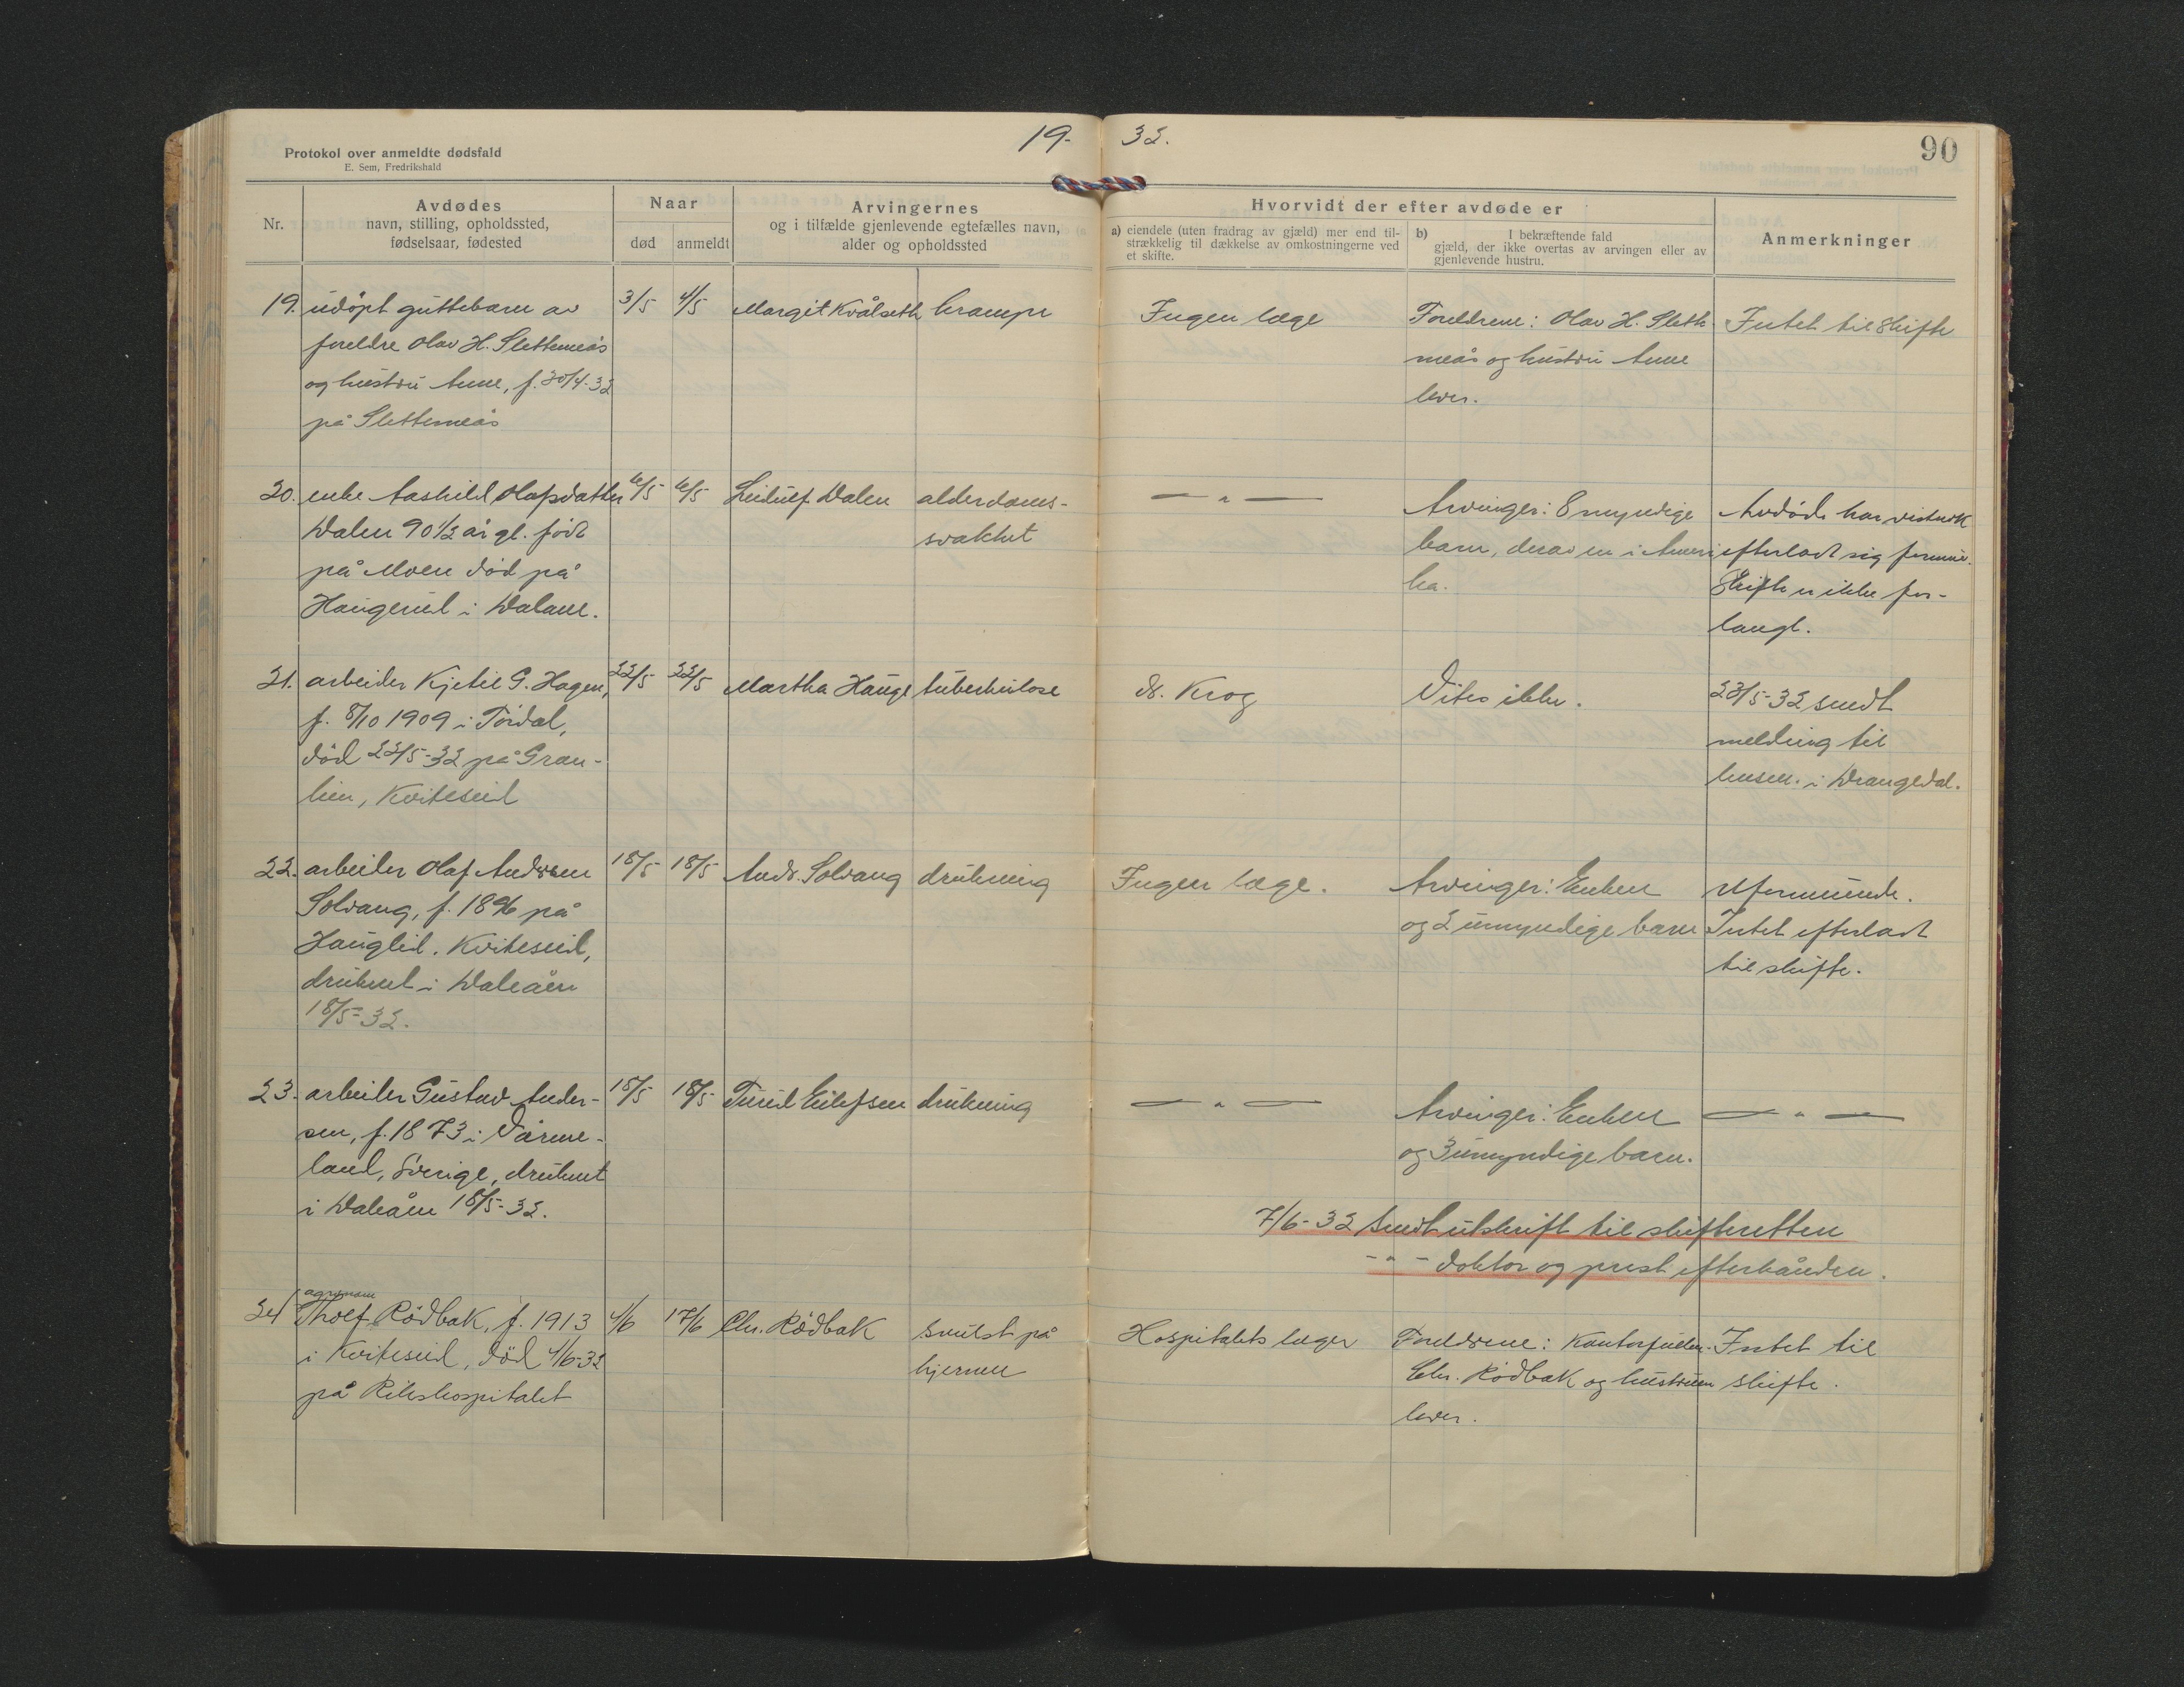 19- 32.
90
Protokol over anmeldte dødsfald
E. Sem, Fredrikshald
Nr.
Avdødes
navn, stilling, opholdssted,
fødselsaar, fødested
Naar
død
anmeldt
Arvingernes
og i tilfælde gjenlevende egtefælles navn,
alder og opholdssted
Hvorvidt der efter avdøde er
a) eiendele (uten fradrag av gjæld) mer end til-
strækkelig til dækkelse av omkostningerne ved
et skifte.
b) I bekræftende fald
gjæld, der ikke overtas av arvingen eller av
gjenlevende hustru.
Anmerkninger
19. udöpt guttebarn av 3/5 4/5 Margit Kvålseth krampe Ingen læge Foreldrene: Olav H. Slette- Intet til skifte
foreldre Olav H. Slettemeås meås og hustru Anne
og hustru Anne, f. 30/4-32 lever.
på Slettemeås
20. enke Aashild Olafsdatter 6/5 6/5 Leidulf Dalen alderdoms- — " — Arvinger: 8 myndige Avdöde har vistnok
Dalen 90 1/2 år gl. född svakhet barn, derav en i Ameri- efterlatt sig formue.
på Moen död på ka. Skifte er ikke for-
Haugerud i Dalane. langt.
21. arbeider Kjetil G. Hagen, 22/5 22/5 Martha Hauge tuberkulose dr. Krog Vites ikke. 23/5-32 sendt
f. 8/10 1909 i Tördal, melding til
död 22/5-32 på Gran- lensm. i Drangedal.
lien, Kviteseid
22. arbeider Olaf Andersen 18/5 18/5 Andr. Solvang drukning Ingen læge. Arvinger: Enken Uformuende.
Solvang, f. 1896 på og 2 umyndige barn Intet efterlatt
Hauglid. Kviteseid, til skifte.
druknet i Daleåen
18/5-32.
23. arbeider Gustav Ander- 18/5 18/5 Turid Eilefsen drukning — " — Arvinger: Enken — " —
sen, f. 1873 i Värme- og 3 umyndige barn.
land, Sverige, druknet
i Daleåen 18/5-32.
7/6-32 Sendt utskrift til skifteretten
- " - doktor og prest efterhånden.
agronom
24 Tholf Rödbak, f. 1913 4/6 17/6 Chr. Rödbak svulst på Hospitalets læger Foreldrene: Kontorfullm. Intet til
i Kviteseid, död 4/6-32 hjernen Chr. Rödbak og hustruen skifte.
på Rikshospitalet lever.